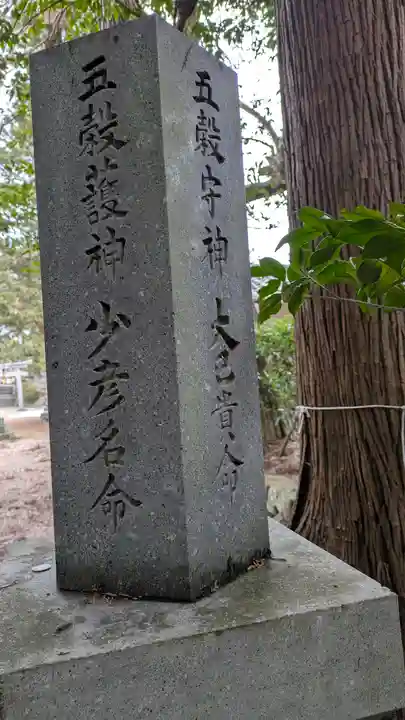 五穀護神 少彦名命
五穀守神 大己貴命